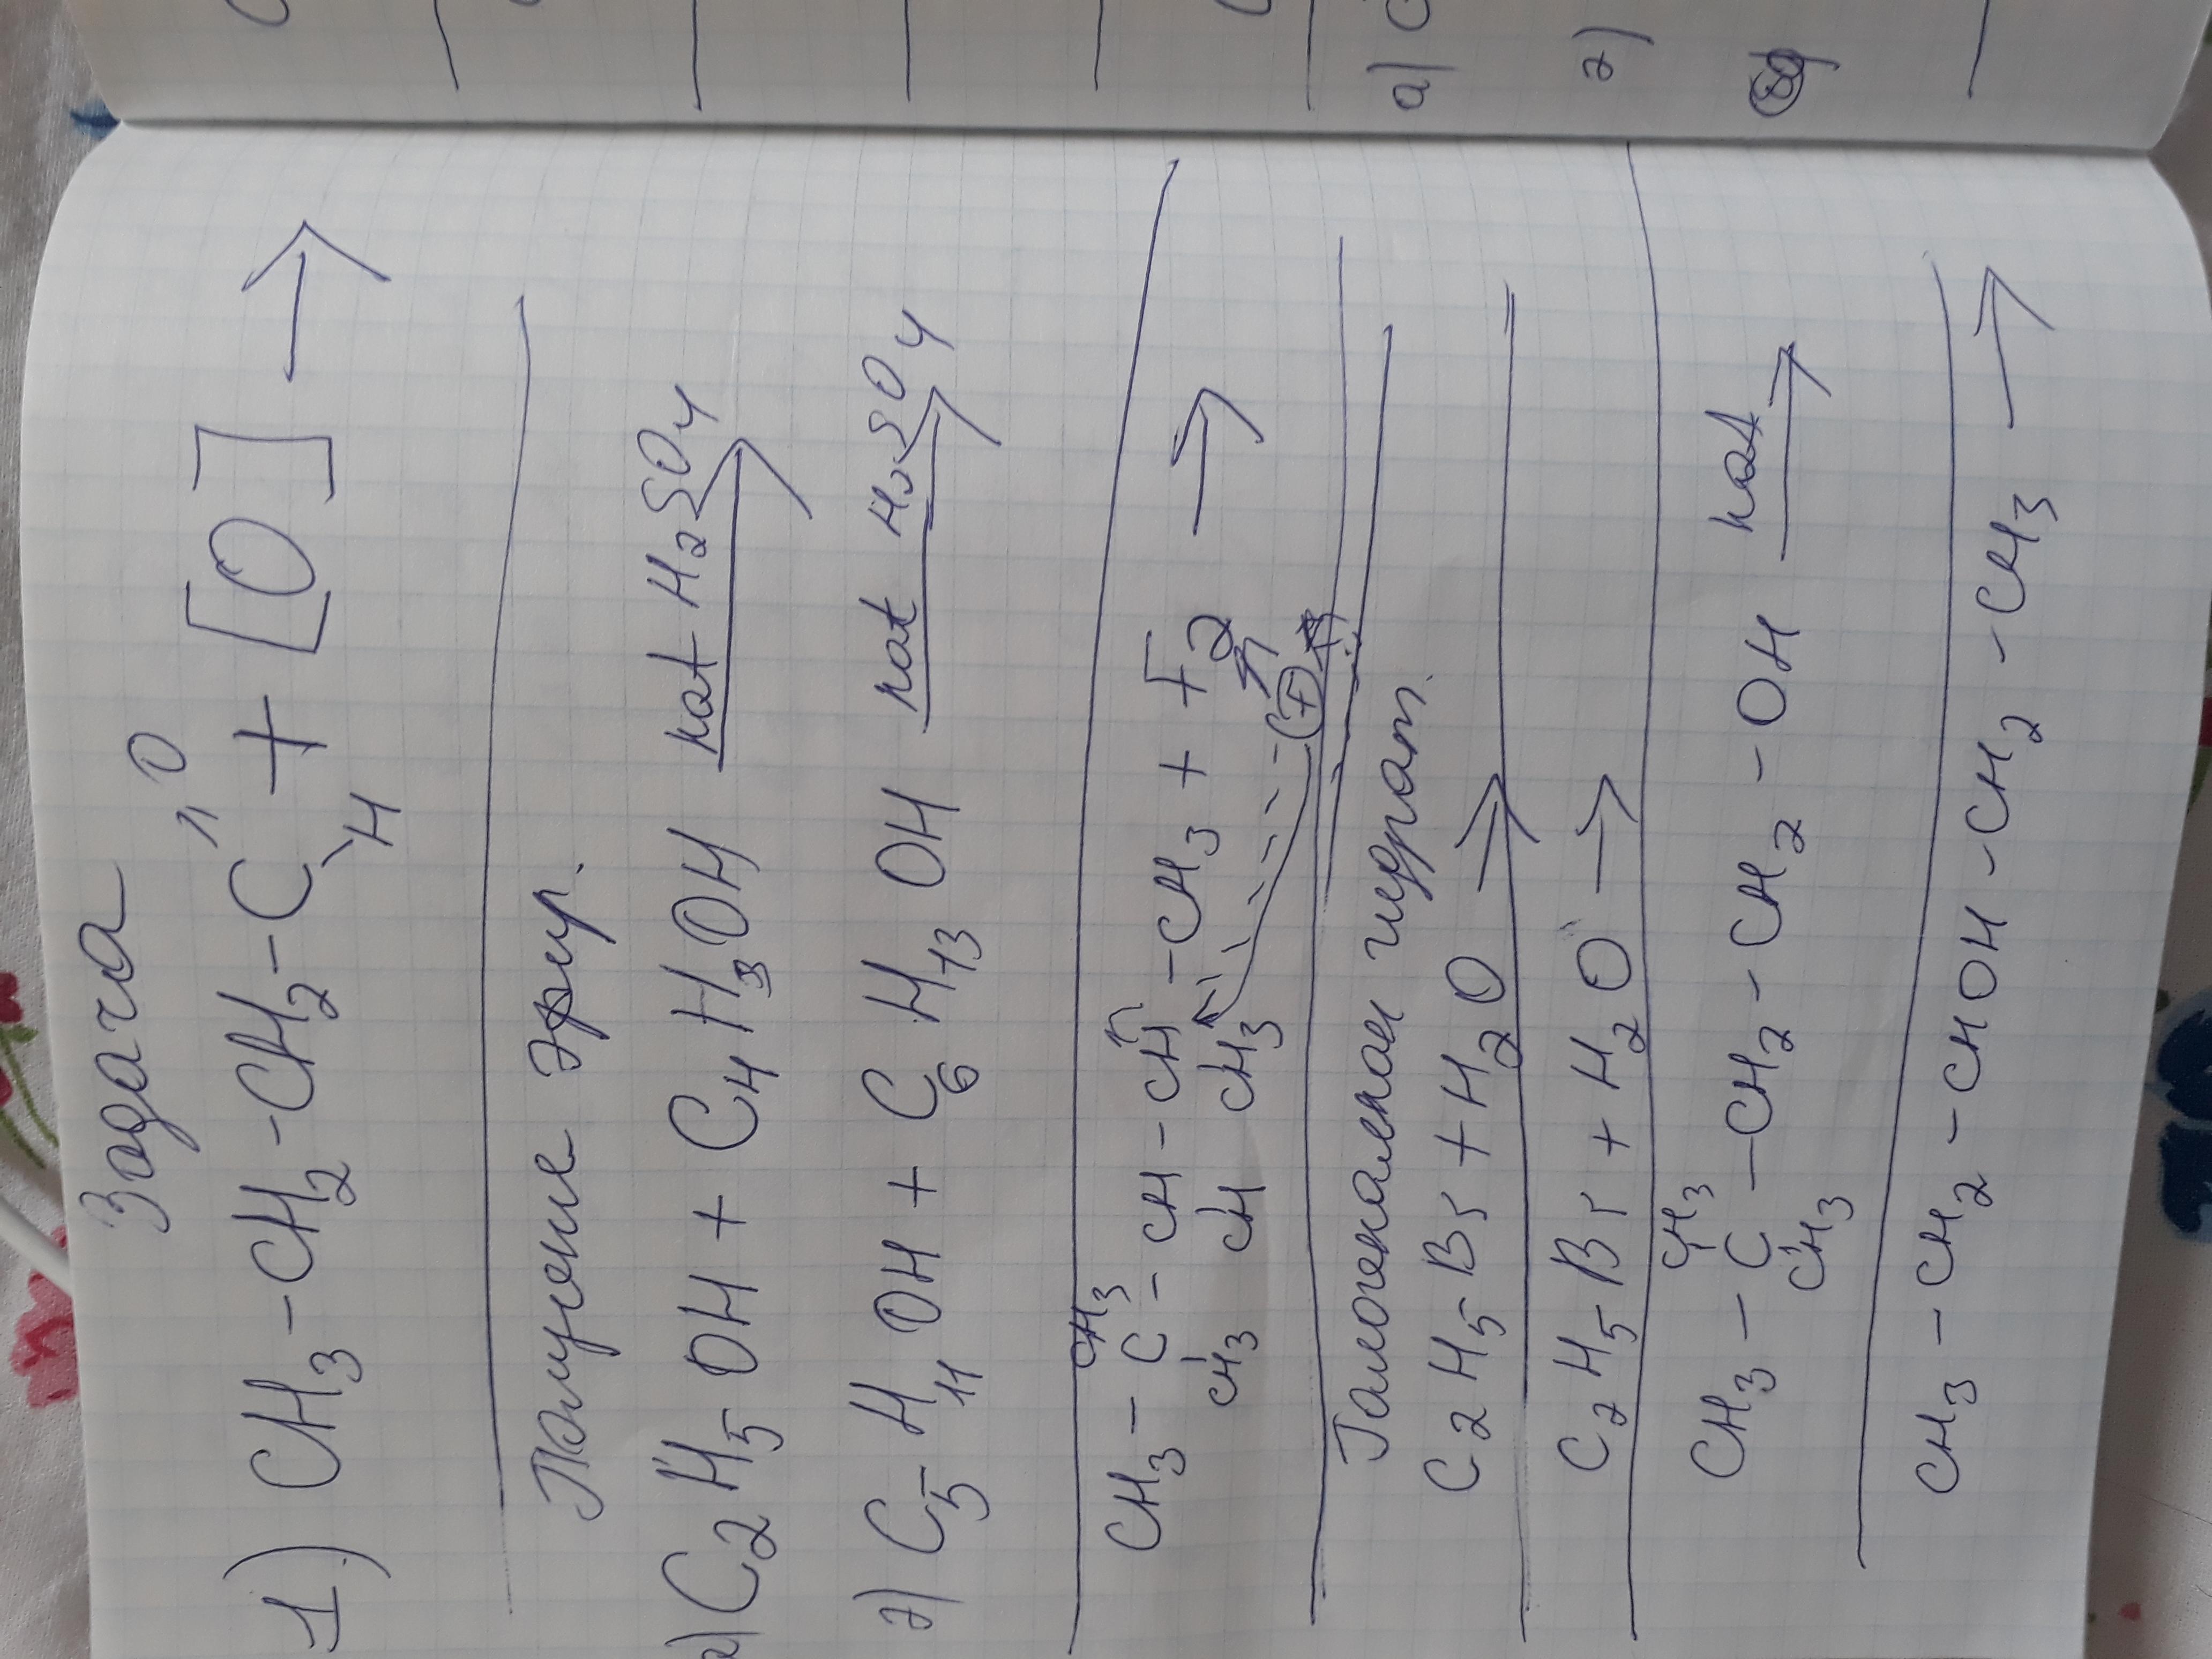 Задача
O
1) CH3-CH2-CH2-C + [O] →
H
Получение эфир.
а) C2H5OH + C4H3OH kat H2SO4 →
д) C5H11OH + C6H13OH kat H2SO4 →
CH3
CH3 - C - CH - CH - CH3 + F2 →
CH3 CH CH3
F
Галогеналкан гидрат.
C2H5Br + H2O →
C2H5Br + H2O →
CH3
CH3 - C - CH2 - CH2 - OH kat →
CH3
CH3 - CH2 - CHOH - CH2 - CH3 →
а) C
д)